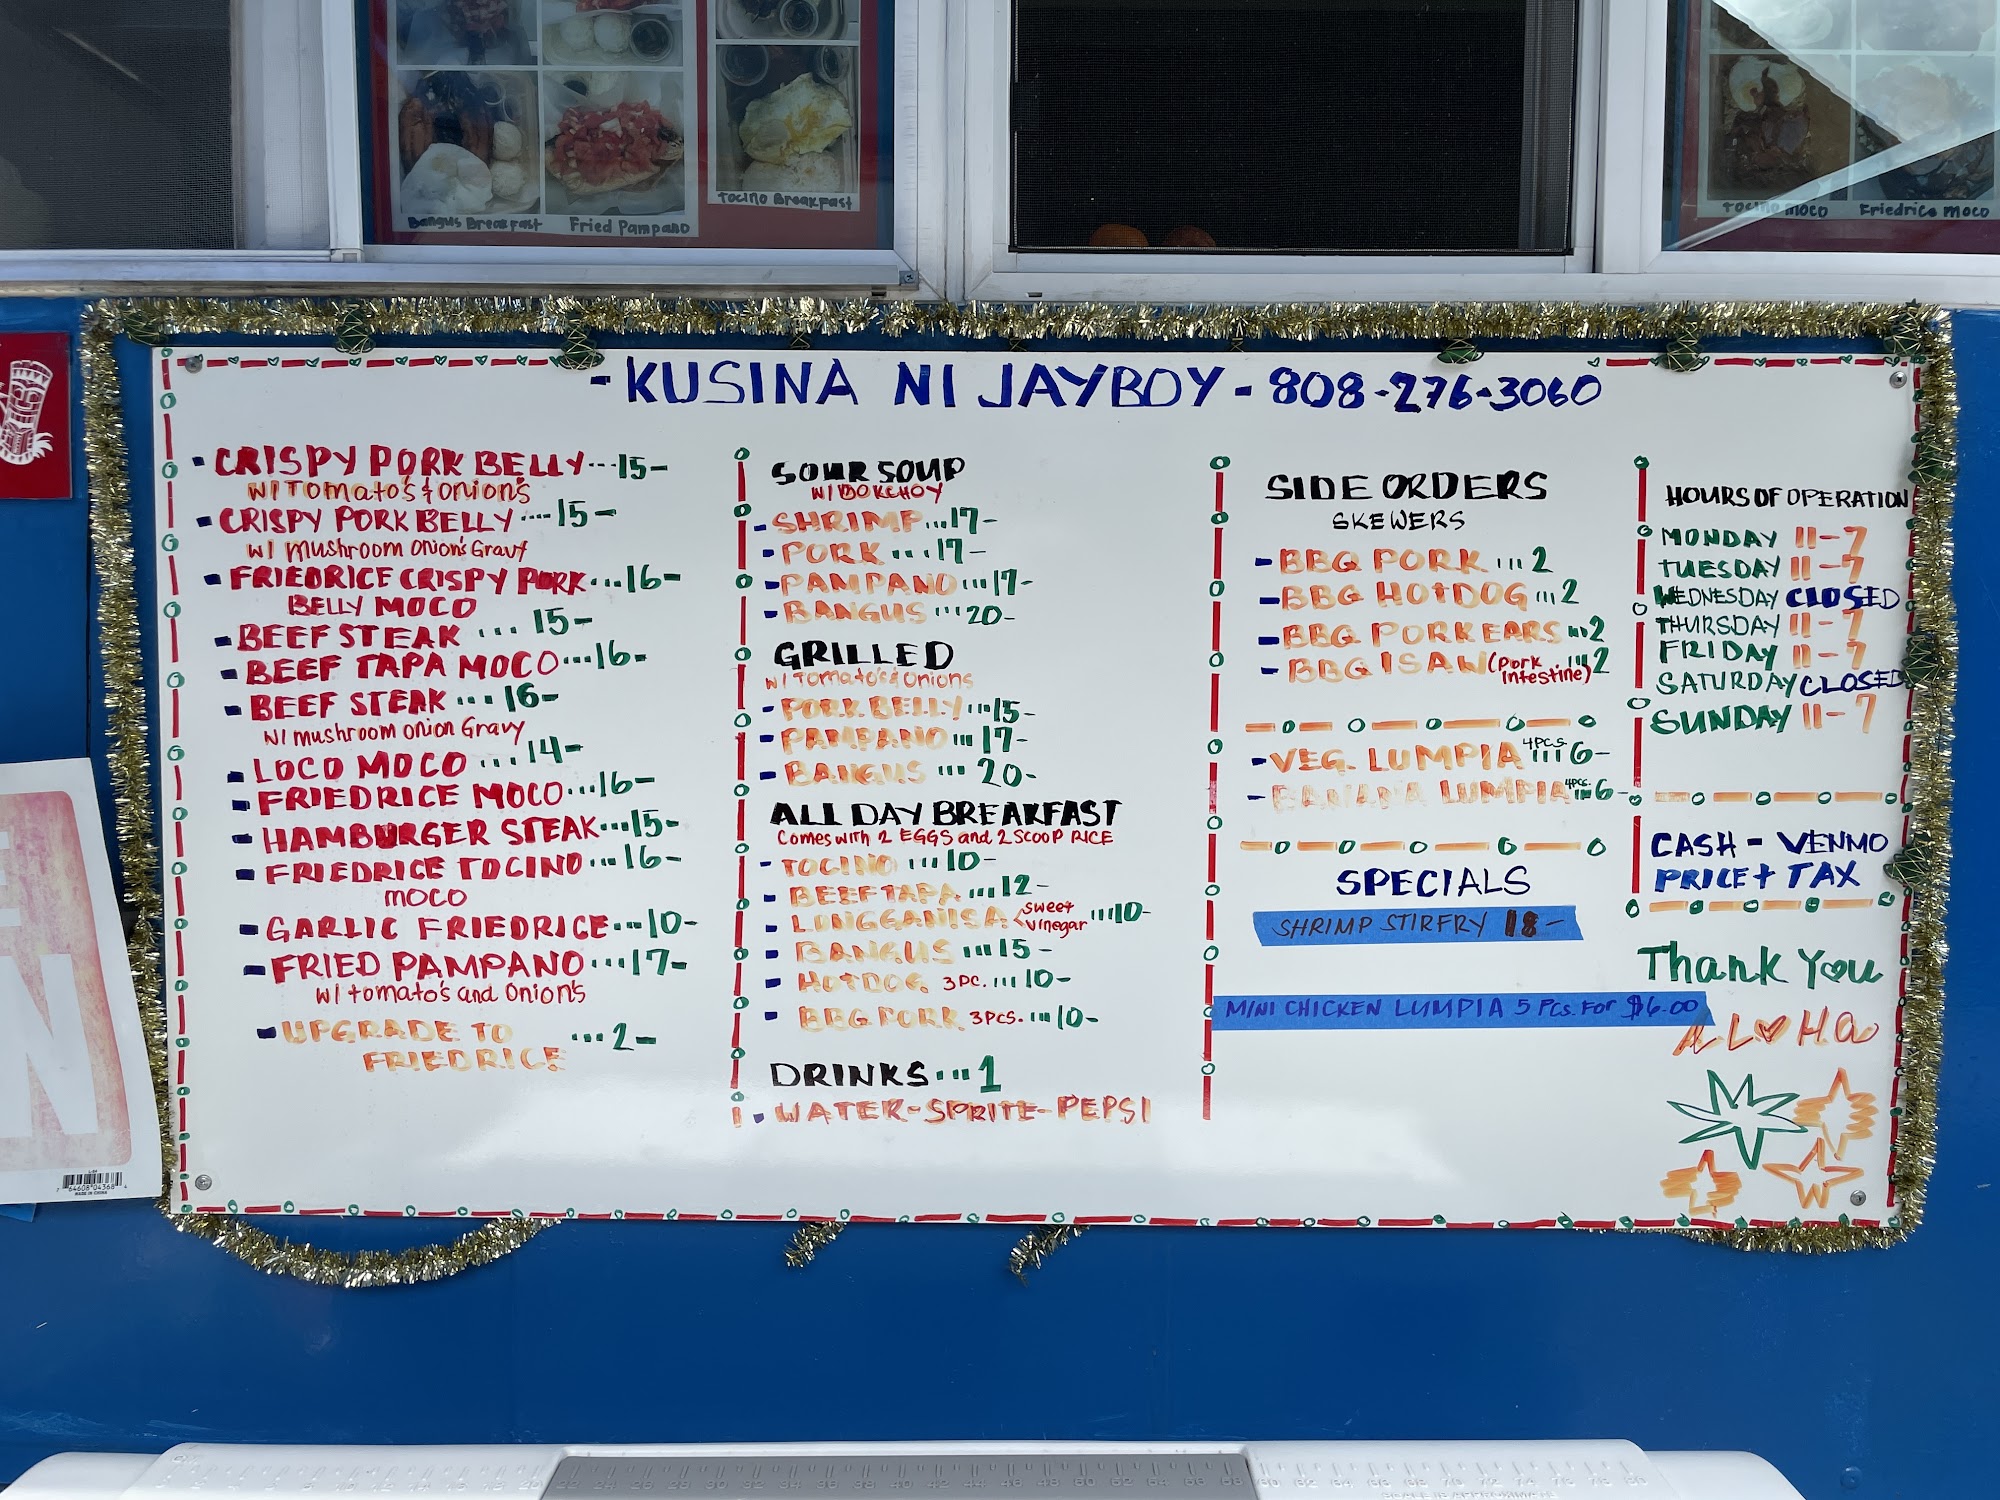 Bangus Breakfast
Fried Pampano
Tocino Breakfast
Tocino Moco
Friedrice Moco
- KUSINA NI JAYBOY - 808-276-3060
- CRISPY PORK BELLY ... 15-
W/ Tomato's & Onion's
- CRISPY PORK BELLY .... 15-
W/ mushroom Onion's Gravy
- FRIEDRICE CRISPY PORK ... 16-
BELLY MOCO
- BEEF STEAK ... 15-
- BEEF TAPA MOCO ... 16-
- BEEF STEAK ... 16-
W/ mushroom onion Gravy
- LOCO MOCO ... 14-
- FRIEDRICE MOCO ... 16-
- HAMBURGER STEAK ... 15-
- FRIEDRICE TOCINO ... 16-
MOCO
- GARLIC FRIEDRICE ... 10-
- FRIED PAMPANO ... 17-
W/ tomato's and Onion's
- UPGRADE TO ... 2-
FRIEDRICE
SOUR SOUP
W/ BOKCHOY
- SHRIMP ... 17-
- PORK ... 17-
- PAMPANO ... 17-
- BANGUS ... 20-
GRILLED
W/ Tomato's & Onions
- PORK BELLY ... 15-
- PAMPANO ... 17-
- BANGUS ... 20-
ALL DAY BREAKFAST
Comes with 2 EGGS and 2 SCOOP RICE
- TOCINO ... 10-
- BEEF TAPA ... 12-
- LONGGANISA < sweet vinegar ... 10-
- BANGUS ... 15-
- HOTDOG 3 PC. ... 10-
- BBQ PORK 3 PCS. ... 10-
DRINKS ... 1
- WATER - SPRITE - PEPSI
SIDE ORDERS
SKEWERS
- BBQ PORK ... 2
- BBQ HOTDOG ... 2
- BBQ PORK EARS ... 2
- BBQ ISAW (Pork intestine) ... 2
- VEG. LUMPIA 4 PCS. ... 6-
- BANANA LUMPIA 4 PCS. ... 6-
SPECIALS
SHRIMP STIRFRY 18-
MINI CHICKEN LUMPIA 5 Pcs. For $6.00
HOURS OF OPERATION
MONDAY 11-7
TUESDAY 11-7
WEDNESDAY CLOSED
THURSDAY 11-7
FRIDAY 11-7
SATURDAY CLOSED
SUNDAY 11-7
CASH - VENMO
PRICE + TAX
Thank You
ALOHA